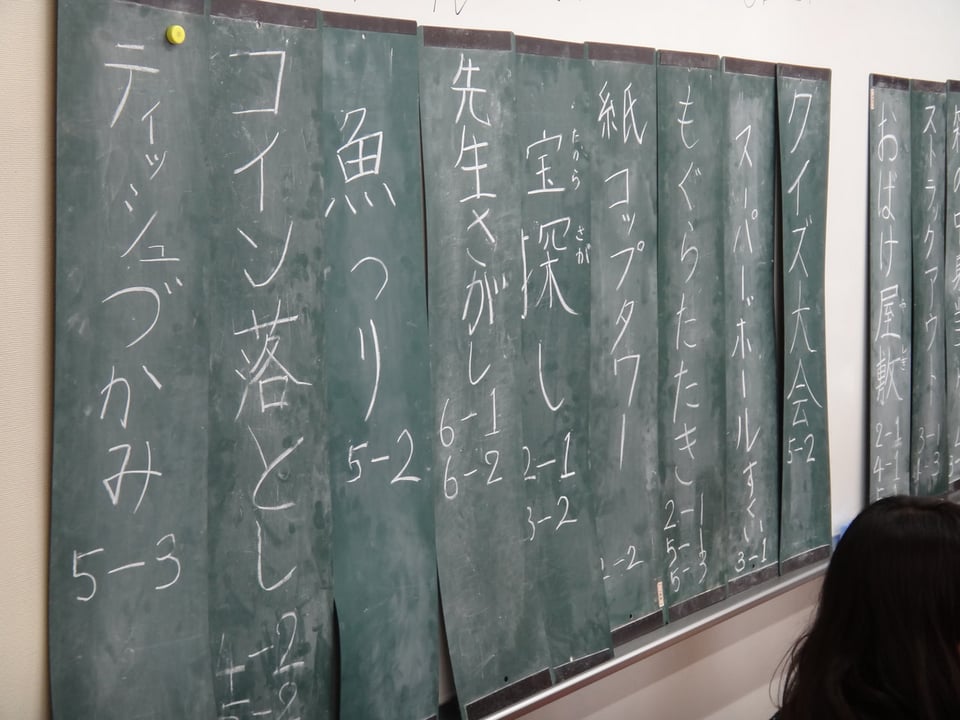 の中
ストラックアウト
3-1
おばけ屋敷
やしき
2-1
4-1
クイズ大会
5-2
スーパーボールすくい
3-1
もぐらたたき
2-1
5-1
5-3
紙コップタワー
1-2
宝探し
たから さが
2-1
3-2
先生さがし
6-1
6-2
魚つり
5-2
コイン落とし
ティッシュづかみ
5-3